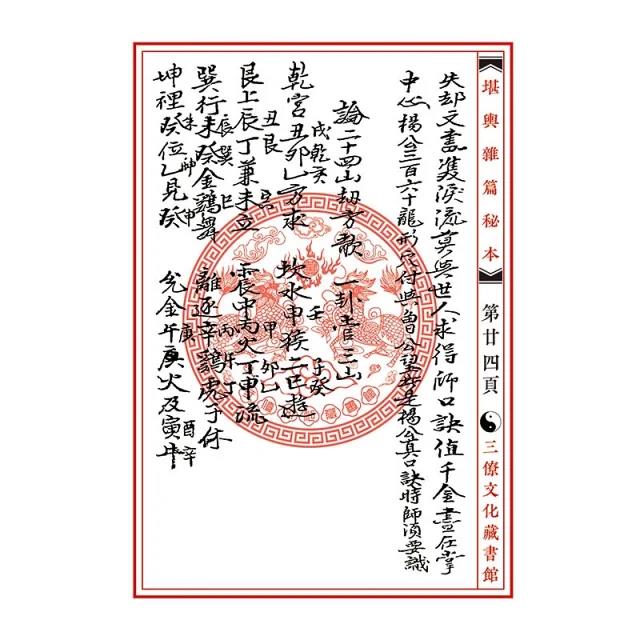 堪輿雜篇秘本 第廿四頁 三僚文化藏書館
失却文書雙淚流莫與世人求得師口訣值千金盡在掌
中心楊公三百六十龍形穴付與曾公望斯是楊公真口訣時師須要識
論二十四山劫方歌 一卦管三山
戌乾亥 壬子癸
乾宮丑卯乙方求 坎水申猴二臣遊
丑艮寅 甲卯乙
艮上辰丁兼未立 震中丙火丁申流
辰巽巳 丙午丁
巽行未癸金鷄舞 離逐辛鷄虎子休
未坤申 庚酉辛
坤裡癸位乙見癸 兌金午庚火及寅牛